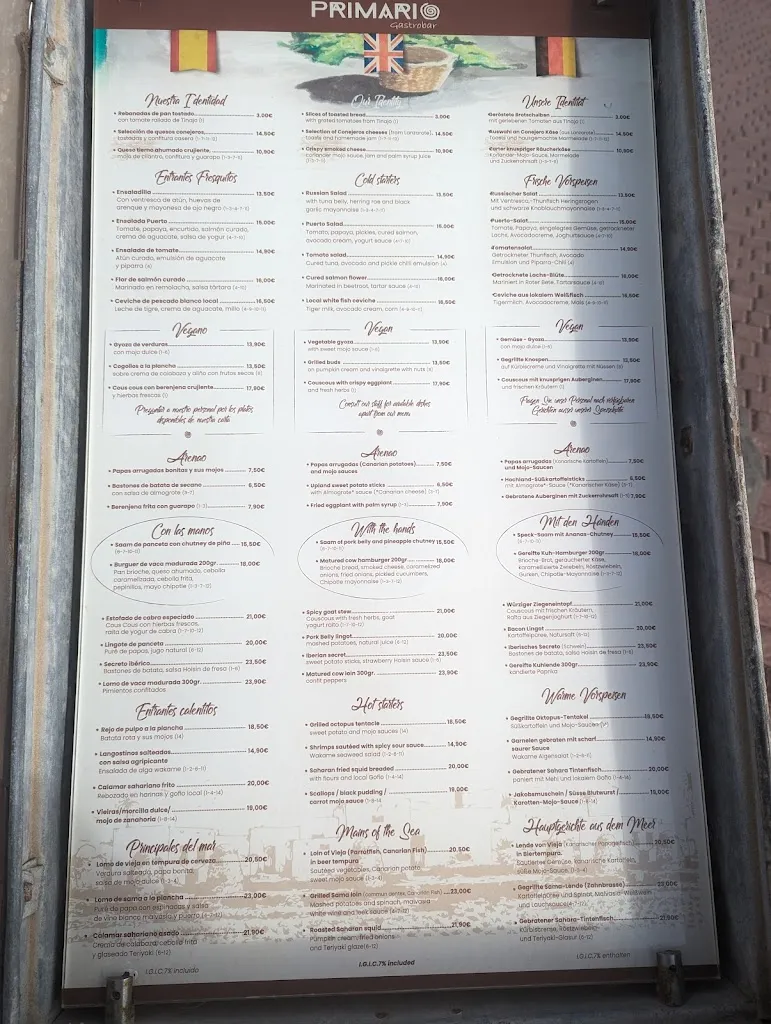 PRIMARIO
Gastrobar
Nuestra Identidad
• Rebanadas de pan tostado 3,00€
con tomate rallado de Tinajo (1)
• Selección de quesos conejeros, 14,50€
tostadas y confitura casera (1-7-5-11)
• Queso tierno ahumado crujiente, 10,90€
mojo de cilantro, confitura y guarapo
Entrantes Fresquitos
• Ensaladilla 13,50€
Con ventresca de atún, huevas de
arenque y mayonesa de ajo negro
• Ensalada Puerto 15,00€
Tomate, papaya, encurtido, salmón curado,
crema de aguacate, salsa de yogur (4-7-10)
• Ensalada de tomate 14,90€
Atún curado, emulsión de aguacate
y piparra (4)
• Flor de salmón curado 16,00€
Marinado en remolacha, salsa tártara (4-10)
• Ceviche de pescado blanco local 16,50€
Leche de tigre, crema de aguacate, millo
Vegano
• Gyoza de verduras 13,90€
con mojo dulce (1-6)
• Cogollos a la plancha 13,50€
sobre crema de calabaza y aliño con frutos secos (8)
• Cous cous con berenjena crujiente 17,90€
y hierbas frescas (1)
Preguntar a nuestro personal por los platos
disponibles de nuestra carta
Arenao
• Papas arrugadas bonitas y sus mojos 7,50€
• Bastones de batata de secano 6,50€
con salsa de almogrote (3-7)
• Berenjena frita con guarapo (1-3) 7,90€
Con las manos
• Saam de panceta con chutney de piña 15,50€
(6-7-10-11)
• Burguer de vaca madurada 200gr. 18,00€
Pan brioche, queso ahumado, cebolla
caramelizada, cebolla frita,
pepinillos, mayo chipotle (1-3-7-12)
• Estofado de cabra especiado 21,00€
Cous Cous con hierbas frescas,
raita de yogur de cabra (1-7-10-12)
• Lingote de panceta 20,00€
Puré de papas, jugo natural (6-12)
• Secreto ibérico 23,50€
Bastones de batata, salsa Hoisin de fresa (1-6)
• Lomo de vaca madurada 300gr. 23,90€
Pimientos confitados
Entrantes calentitos
• Rejo de pulpo a la plancha 18,50€
Batata rota y sus mojos (14)
• Langostinos salteados 14,90€
con salsa agripicante
Ensalada de alga wakame (1-2-6-11)
• Calamar sahariano frito 20,00€
Rebozado en harinas y gofio local (1-4-14)
• Vieiras/morcilla dulce/ 19,00€
mojo de zanahoria (1-8-14)
Principales del mar
• Lomo de vieja en tempura de cerveza 20,50€
Verdura salteada, papa bonita,
salsa de mojo dulce (1-3-4)
• Lomo de sama a la plancha 23,00€
Puré de papa con espinacas y salsa
de vino blanco malvasía y puerro (4-7-12)
• Calamar sahariano asado 21,90€
Crema de calabaza, cebolla frita
y glaseado Teriyaki (6-12)
I.G.I.C.7% incluido
Our Identity
• Slices of toasted bread 3,00€
with grated tomatoes from Tinajo (1)
• Selection of Conejeros cheeses (from Lanzarote), 14,50€
toasts and homemade jam
• Crispy smoked cheese 10,90€
Koriander mojo sauce, jam and palm syrup juice
Cold starters
• Russian Salad 13,50€
with tuna belly, herring roe and black
garlic mayonnaise
• Puerto Salad 15,00€
Tomato, papaya, pickles, cured salmon,
avocado cream, yogurt sauce (4-7-10)
• Tomato salad 14,90€
Cured tuna, avocado and pickle chilli emulsion (4)
• Cured salmon flower 16,00€
Marinated in beetroot, tartar sauce
• Local white fish ceviche 16,50€
Tiger milk, avocado cream, corn
Vegan
• Vegetable gyoza 13,90€
with sweet mojo sauce (1-6)
• Grilled buds 13,50€
on pumpkin cream and vinaigrette with nuts (8)
• Couscous with crispy eggplant 17,90€
and fresh herbs (1)
Consult our staff for available dishes
apart from our menu
Arenao
• Papas arrugadas (Canarian potatoes) 7,50€
and mojo sauces
• Upland sweet potato sticks 6,50€
with Almogrote* sauce (*Canarian cheese) (3-7)
• Fried eggplant with palm syrup (1-3) 7,90€
With the hands
• Saam of pork belly and pineapple chutney 15,50€
(6-7-10-11)
• Matured cow hamburger 200gr. 18,00€
Brioche bread, smoked cheese, caramelized
onions, fried onions, pickled cucumbers,
Chipotle mayonnaise (1-3-7-12)
• Spicy goat stew 21,00€
Couscous with fresh herbs, goat
yogurt raita (1-7-10-12)
• Pork Belly lingot 20,00€
mashed potatoes, natural juice (6-12)
• Iberian secret 23,50€
sweet potato sticks, strawberry Hoisin sauce (1-6)
• Matured cow loin 300gr. 23,90€
confit peppers
Hot starters
• Grilled octopus tentacle 18,50€
sweet potato and mojo sauces (14)
• Shrimps sautéed with spicy sour sauce 14,90€
Wakame seaweed salad (1-2-6-11)
• Saharan fried squid breaded 20,00€
with flours and local Gofio (1-4-14)
• Scallops / black pudding / 19,00€
carrot mojo sauce (1-8-14)
Mains of the Sea
• Loin of Vieja (Parrotfish, Canarian Fish) 20,50€
in beer tempura
Sautéed vegetables, Canarian potato
sweet mojo sauce (1-3-4)
• Grilled Sama loin (Common dentex, Canarian Fish) 23,00€
Mashed potatoes and spinach, malvasia
white wine and leek sauce (4-7-12)
• Roasted Saharan squid 21,90€
Pumpkin cream, fried onions
and Teriyaki glaze (6-12)
I.G.I.C.7% included
Unsere Identität
Geröstete Brotscheiben 3,00€
mit geriebenen Tomaten aus Tinajo (1)
Auswahl an Conejero Käse (aus Lanzarote), 14,50€
Toasts und hausgemachte Marmelade
Zarter knuspriger Räucherkäse 10,90€
Koriander-Mojo-Sauce, Marmelade
und Zuckerrohrsaft
Frische Vorspeisen
Russischer Salat 13,50€
Mit Ventresca-Thunfisch Heringsrogen
und schwarze Knoblauchmayonnaise
Puerto-Salat 15,00€
Tomate, Papaya, eingelegtes Gemüse, getrockneter
Lachs, Avocadocreme, Joghurtsauce (4-7-10)
Tomatensalat 14,90€
Getrockneter Thunfisch, Avocado
Emulsion und Piparra-Chili (4)
Getrocknete Lachs-Blüte 16,00€
Mariniert in Roter Bete, Tartarsauce
Ceviche aus lokalem Weißfisch 16,50€
Tigermilch, Avocadocreme, Mais
Vegan
• Gemüse - Gyoza 13,90€
con mojo dulce (1-6)
• Gegrillte Knospen 13,50€
auf Kürbiscreme und Vinaigrette mit Nüssen (8)
• Couscous mit knusprigen Auberginen 17,90€
und frischen Kräutern (1)
Fragen Sie unser Personal nach verfügbaren
Gerichten ausser unserer Speisekarte
Arenao
• Papas arrugadas (Kanarische Kartoffeln) 7,50€
und Mojo-Saucen
• Hochland-Süßkartoffelsticks 6,50€
mit Almogrote*-Sauce (*Kanarischer Käse) (3-7)
• Gebratene Auberginen mit Zuckerrohrsaft (1-3) 7,90€
Mit den Händen
• Speck-Saam mit Ananas-Chutney 15,50€
(6-7-10-11)
• Gereifte Kuh-Hamburger 200gr. 18,00€
Brioche-Brot, geräucherter Käse,
Karamellisierte Zwiebeln, Röstzwiebeln,
Gurken, Chipotle Mayonnaise (1-3-7-12)
• Würziger Ziegeneintopf 21,00€
Couscous mit frischen Kräutern,
Raita aus Ziegenjoghurt (1-7-10-12)
• Bacon Lingot 20,00€
Kartoffelpüree, Natursaft (6-12)
• Iberisches Secreto (Schwein) 23,50€
Bastones de batata, salsa Hoisin de fresa (1-6)
• Gereifte Kuhlende 300gr. 23,90€
kandierte Paprika
Warme Vorspeisen
• Gegrillte Oktopus-Tentakel 18,50€
Süßkartoffeln und Mojo-Saucen
• Garnelen gebraten mit scharf 14,90€
saurer Sauce
Wakame Algensalat (1-2-6-11)
• Gebratener Sahara Tintenfisch 20,00€
paniert mit Mehl und lokalem Gofio (1-4-14)
• Jakobsmuscheln / Süsse Blutwurst / 19,00€
Karotten-Mojo-Sauce (1-8-14)
Hauptgerichte aus dem Meer
• Lende von Vieja (Kanarische Papageifisch) 20,50€
in Biertempura.
Sautierter Gemüse, kanarische Kartoffeln,
süße Mojo-Sauce.
• Gegrillte Sama-Lende (Zahnbrasse) 23,00€
Kartoffelpüree und Spinat, Malvasia-Weißwein
und Lauchsauce
• Gebratener Sahara-Tintenfisch 21,90€
Kürbiscreme, Röstzwiebeln
und Teriyaki-Glasur (6-12)
I.G.I.C.7% enthalten